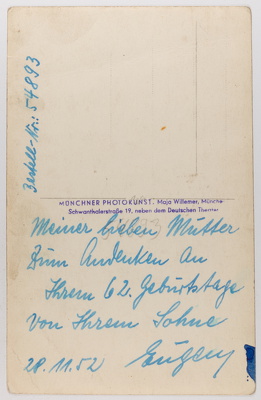 Bestell-Nr.: 54893
MÜNCHNER PHOTOKUNST. Maja Willemer, Münche
Schwanthalerstraße 19, neben dem Deutschen Theater
Meiner lieben Mutter
Zum Andenken an
Ihrem 62. Geburtstage
von Ihrem Sohne
20.11.52 Eugen